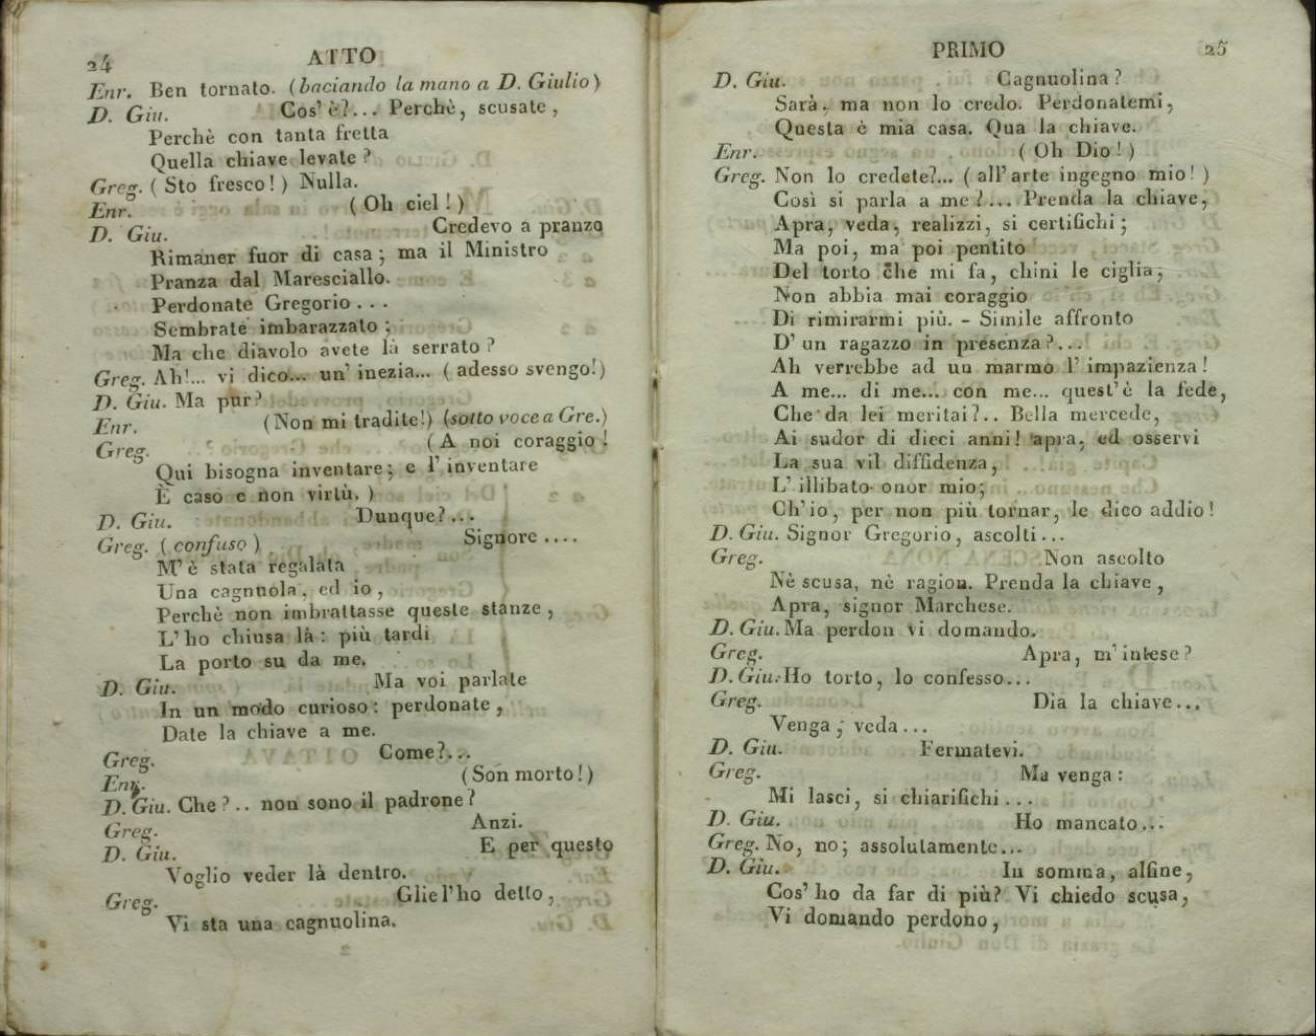 24 ATTO
Enr. Ben tornato. (baciando la mano a D. Giulio)
D. Giu. Cos' è?... Perchè, scusate,
Perchè con tanta fretta
Quella chiave levate?
Greg. (Sto fresco!) Nulla.
Enr. (Oh ciel!)
D. Giu. Credevo a pranzo
Rimaner fuor di casa; ma il Ministro
Pranza dal Maresciallo.
Perdonate Gregorio...
Sembrate imbarazzato;
Ma che diavolo avete là serrato?
Greg. Ah!... vi dico... un' inezia... (adesso svengo!)
D. Giu. Ma pur?
Enr. (Non mi tradite!) (sotto voce a Gre.)
Greg. (A noi coraggio!
Qui bisogna inventare; e l' inventare
È caso e non virtù.)
D. Giu. Dunque?...
Greg. (confuso) Signore....
M' è stata regalata
Una cagnuola, ed io,
Perchè non imbrattasse queste stanze,
L' ho chiusa là: più tardi
La porto su da me.
D. Giu. Ma voi parlate
In un modo curioso: perdonate,
Date la chiave a me.
Greg. Come?...
Enr. (Son morto!)
D. Giu. Che?.. non sono il padrone?
Greg. Anzi.
D. Giu. E per questo
Voglio veder là dentro.
Greg. Gliel' ho detto,
Vi sta una cagnuolina.
2
PRIMO 25
D. Giu. Cagnuolina?
Sarà, ma non lo credo. Perdonatemi,
Questa è mia casa. Qua la chiave.
Enr. (Oh Dio!)
Greg. Non lo credete?... (all' arte ingegno mio!)
Così si parla a me?... Prenda la chiave,
Apra, veda, realizzi, si certifichi;
Ma poi, ma poi pentito
Del torto che mi fa, chini le ciglia,
Non abbia mai coraggio
Di rimirarmi più. - Simile affronto
D' un ragazzo in presenza?...
Ah verrebbe ad un marmo l' impazienza!
A me... di me... con me... quest' è la fede,
Che da lei meritai?.. Bella mercede,
Ai sudor di dieci anni! apra, ed osservi
La sua vil diffidenza,
L' illibato onor mio;
Ch' io, per non più tornar, le dico addio!
D. Giu. Signor Gregorio, ascolti...
Greg. Non ascolto
Nè scusa, nè ragion. Prenda la chiave,
Apra, signor Marchese.
D. Giu. Ma perdon vi domando.
Greg. Apra, m' intese?
D. Giu. Ho torto, lo confesso...
Greg. Dia la chiave...
Venga, veda...
D. Giu. Fermatevi.
Greg. Ma venga:
Mi lasci, si chiarifichi...
D. Giu. Ho mancato...
Greg. No, no; assolutamente...
D. Giu. In somma, alfine,
Cos' ho da far di più? Vi chiedo scusa,
Vi domando perdono,